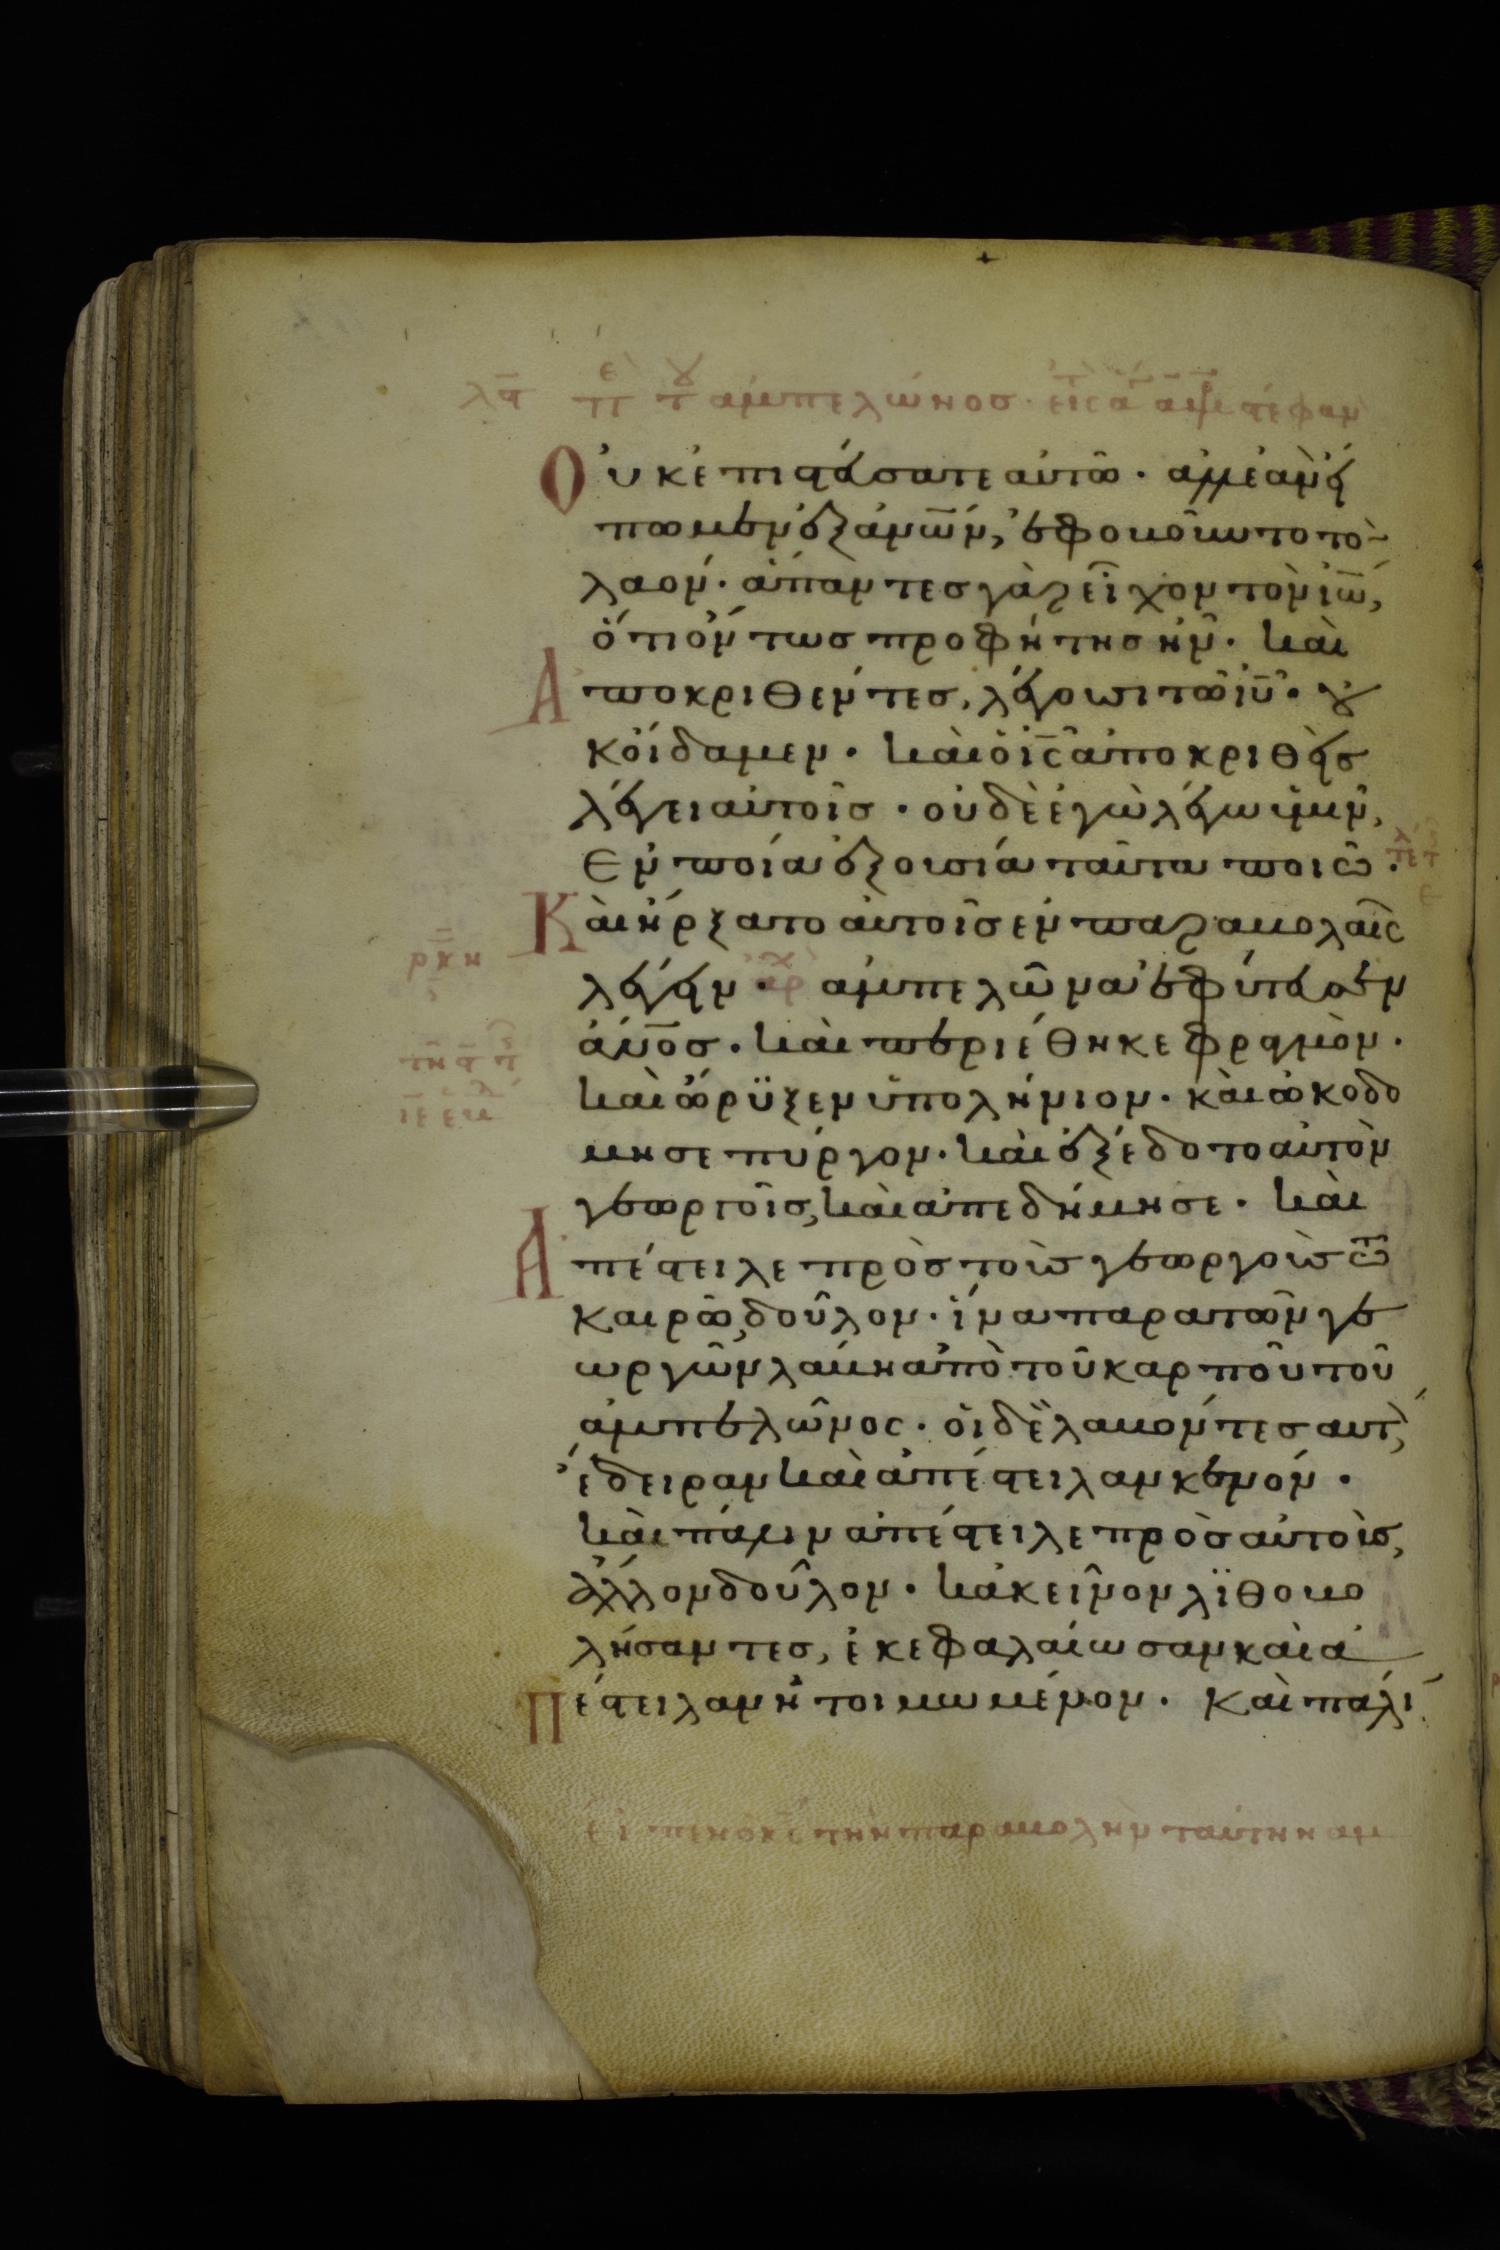 λα περὶ τοῦ ἀμπελώνοσ
Οὐκ ἐπιστεύσατε αὐτῶ· ἀλλ ἐὰν εἴ
πωμεν ἐξ ἀνων, ἐφοβοῦντο τὸν
λαόν· ἅπαντεσ γὰρ εἶχον τὸν ἰω,
ὅτι ὄντωσ προφήτησ ἦν· καὶ
Αποκριθέντεσ, λέγουσι τῶ ιυ· οὐ
κ οἴδαμεν· καὶ ὁ ισ ἀποκριθεὶσ
λέγει αὐτοῖσ· οὐδὲ ἐγὼ λέγω ὑμῖν,
Εν ποία ἐξουσία ταῦτα ποιῶ·
Καὶ ἤρξατο αὐτοῖσ ἐν παραβολαῖσ
λέγειν· ἀμπελῶνα ἐφύτευσεν
ἀνοσ· καὶ περιέθηκε φραγμὸν·
καὶ ὤρυξεν ὑπολήνιον· καὶ ὠκοδό
μησε πύργον· καὶ ἐξέδοτο αὐτὸν
γεωργοῖσ, καὶ ἀπεδήμησε· καὶ
Απέστειλε πρὸσ τοὺσ γεωργοὺσ τῶ
καιρῶ, δοῦλον· ἵνα παρα τῶν γε
ωργῶν λάβη ἀπὸ τοῦ καρποῦ τοῦ
ἀμπελῶνοσ· οἱ δὲ λαβόντεσ αυτ,
ἔδειραν καὶ ἀπέστειλαν κενόν·
καὶ πάλιν ἀπέστειλε πρὸσ αὐτοὺσ,
ἄλλον δοῦλον· κἀκεῖνον λϊθοβο
λήσαντεσ, ἐκεφαλαίωσαν καὶ ἀ
Πέστειλαν ἠτοιμωμένον· Καὶ πάλι
εἶπεν ὁ κσ τὴν παραβολὴν ταύτην αμ